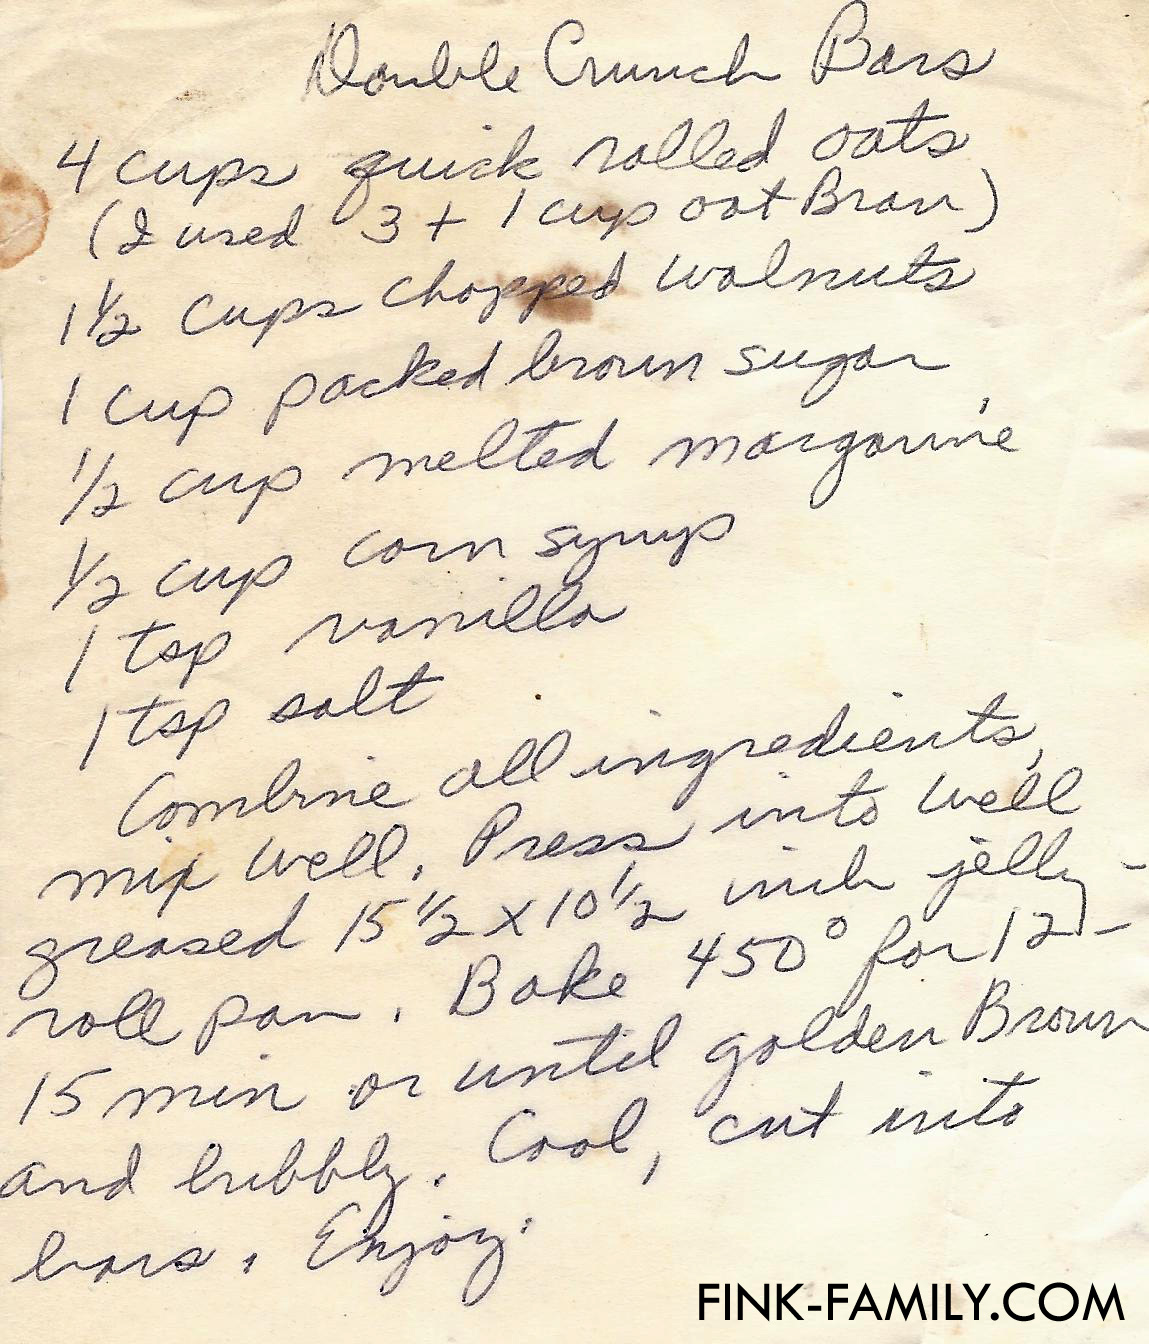 Double Crunch Bars
4 cups quick rolled oats
(I used 3 + 1 cup oat Bran)
1 1/2 cups chopped walnuts
1 cup packed brown sugar
1/2 cup melted margarine
1/2 cup corn syrup
1 tsp vanilla
1 tsp salt
Combine all ingredients,
mix well. Press into well
greased 15 1/2 x 10 1/2 inch jelly-
roll pan. Bake 450° for 12-
15 min or until golden Brown
and bubbly. Cool, cut into
bars. Enjoy.
FINK-FAMILY.COM